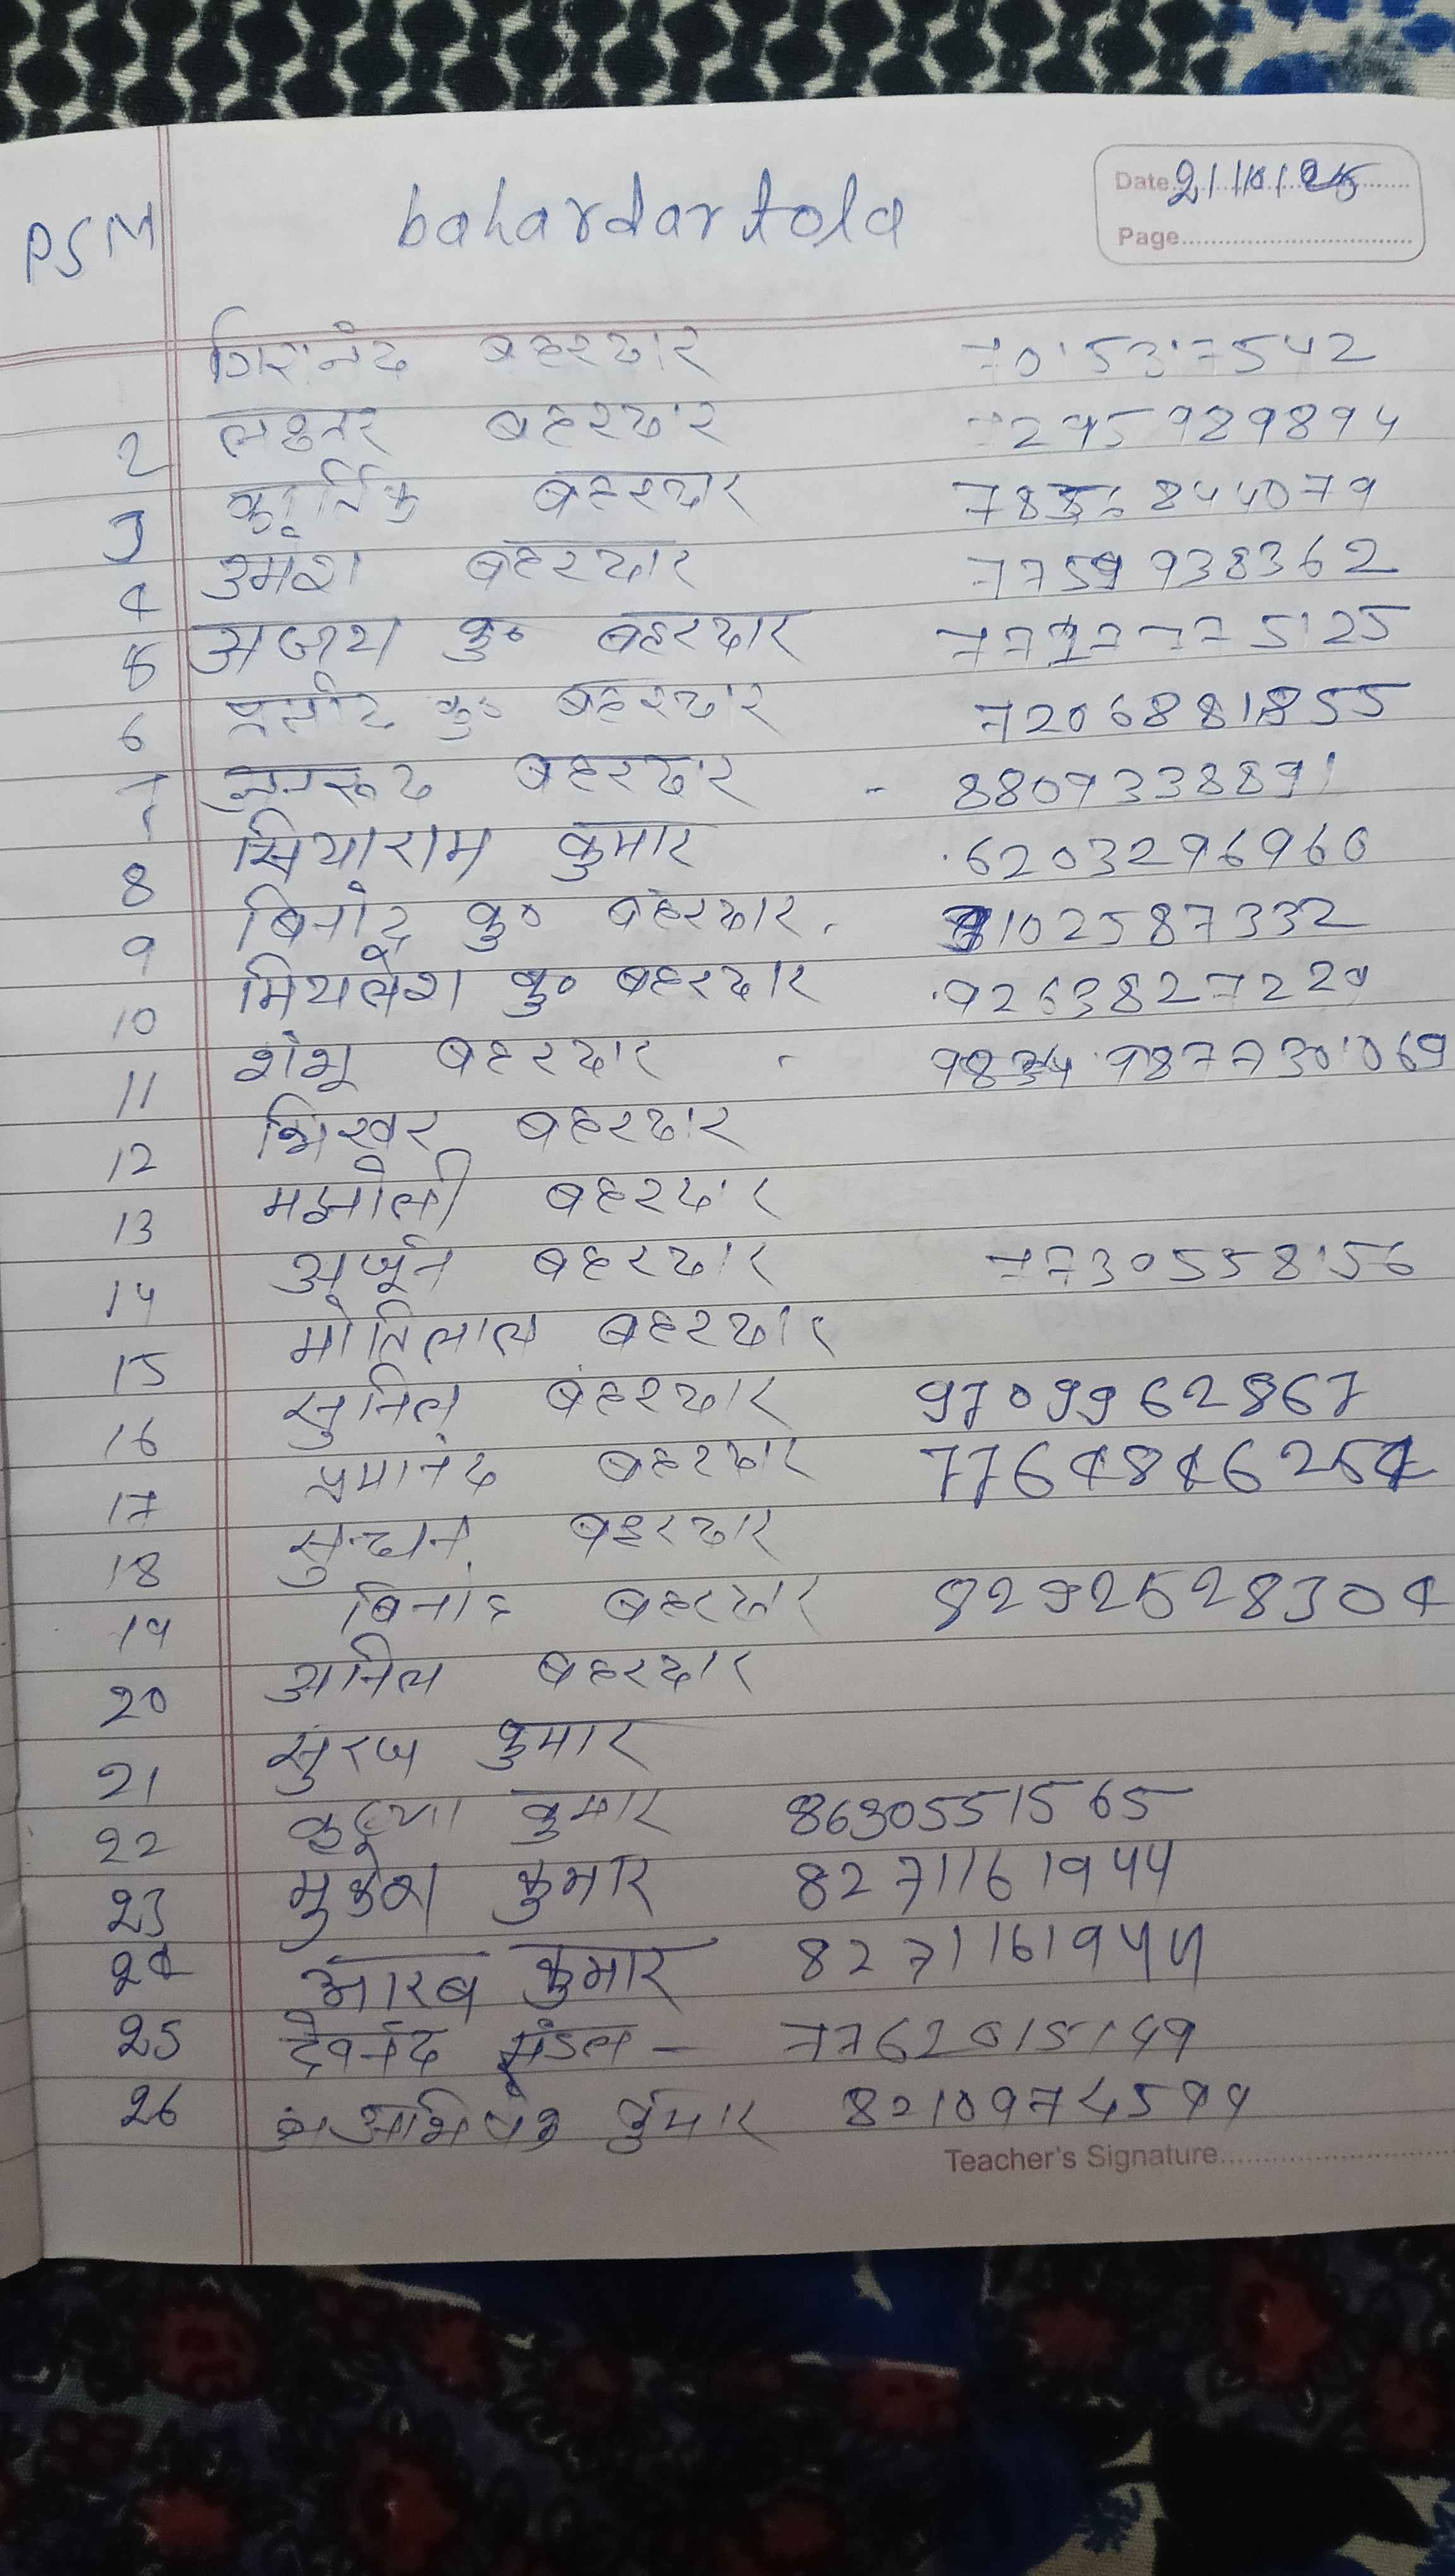 PSM bahardartola Date 21/10/25
Page
बहरदार 7015317542
2 बहरदार 7295989894
3 कार्तिक बहरदार 844079
4 उमेश बहरदार 7759938362
5 अजय कु० बहरदार 775125
6 कु० बहरदार 7206881855
7 बहरदार - 8809338891
8 सियाराम कुमार 6203296960
9 बिनोद कु० बहरदार 9102587332
10 मिथलेश कु० बहरदार 9263827229
11 शंभू बहरदार - 9877301069
12 भिखर बहरदार
13 मझौली बहरदार
14 अर्जून बहरदार 7730558156
15 मोतिलाल बहरदार
16 सुनिल बहरदार 9709962867
17 प्रमानंद बहरदार 7764846254
18 बहरदार
19 बिनोद बहरदार 8292528304
20 अनिल बहरदार
21 सुरज कुमार
22 कुमार 8630551565
23 मुकेश कुमार 8271161944
24 आरब कुमार 8271161944
25 देवनंद मंडल - 7762015149
26 अभिषेक कुमार 8210974599
Teacher's Signature